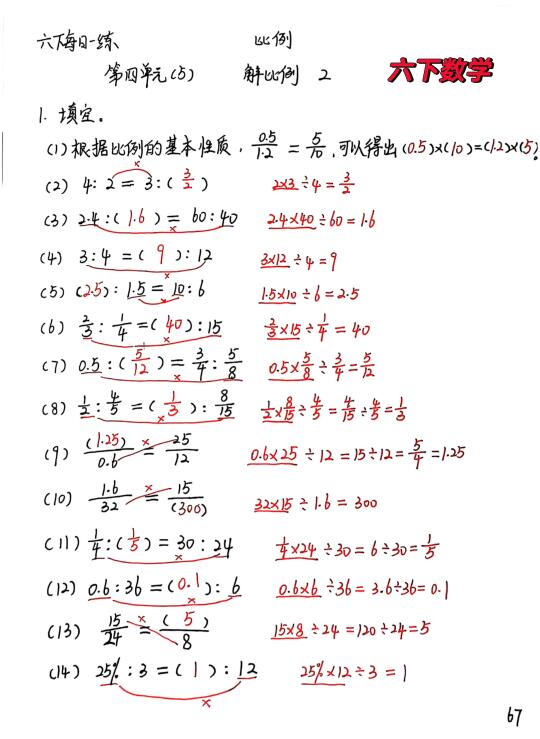 六下每日一练 比例
第四单元(5) 解比例 2 六下数学
1. 填空。
(1) 根据比例的基本性质, 0.5/1.2 = 5/10, 可以得出(0.5)×(10)=(1.2)×(5)。
(2) 4:2=3:(3/2) 2×3÷4=3/2
(3) 2.4:(1.6)=60:40 2.4×40÷60=1.6
(4) 3:4=(9):12 3×12÷4=9
(5) (2.5):1.5=10:6 1.5×10÷6=2.5
(6) 2/3:1/4=(40):15 2/3×15÷1/4=40
(7) 0.5:(5/12)=3/4:5/8 0.5×5/8÷3/4=5/12
(8) 1/2:4/5=(1/3):8/15 1/2×8/15÷4/5=4/15÷4/5=1/3
(9) (1.25)/0.6=25/12 0.6×25÷12=15÷12=5/4=1.25
(10) 1.6/32=15/(300) 32×15÷1.6=300
(11) 1/4:(1/5)=30:24 1/4×24÷30=6÷30=1/5
(12) 0.6:36=(0.1):6 0.6×6÷36=3.6÷36=0.1
(13) 15/24=(5)/8 15×8÷24=120÷24=5
(14) 25%:3=(1):12 25%×12÷3=1
67